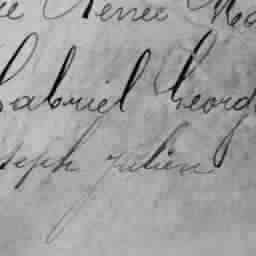 Renée
Gabriel Georg
seph Julien